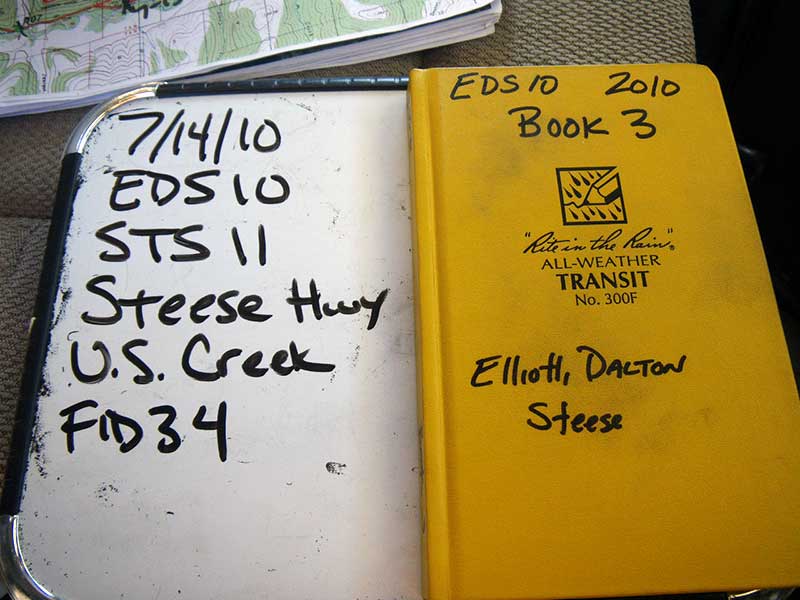 7/14/10
EDS10
STS 11
Steese Hwy
U.S. Creek
FID34
EDS10 2010
BOOK 3
"Rite in the Rain"®
ALL-WEATHER
TRANSIT
No. 300F
Elliott, DALTON
Steese